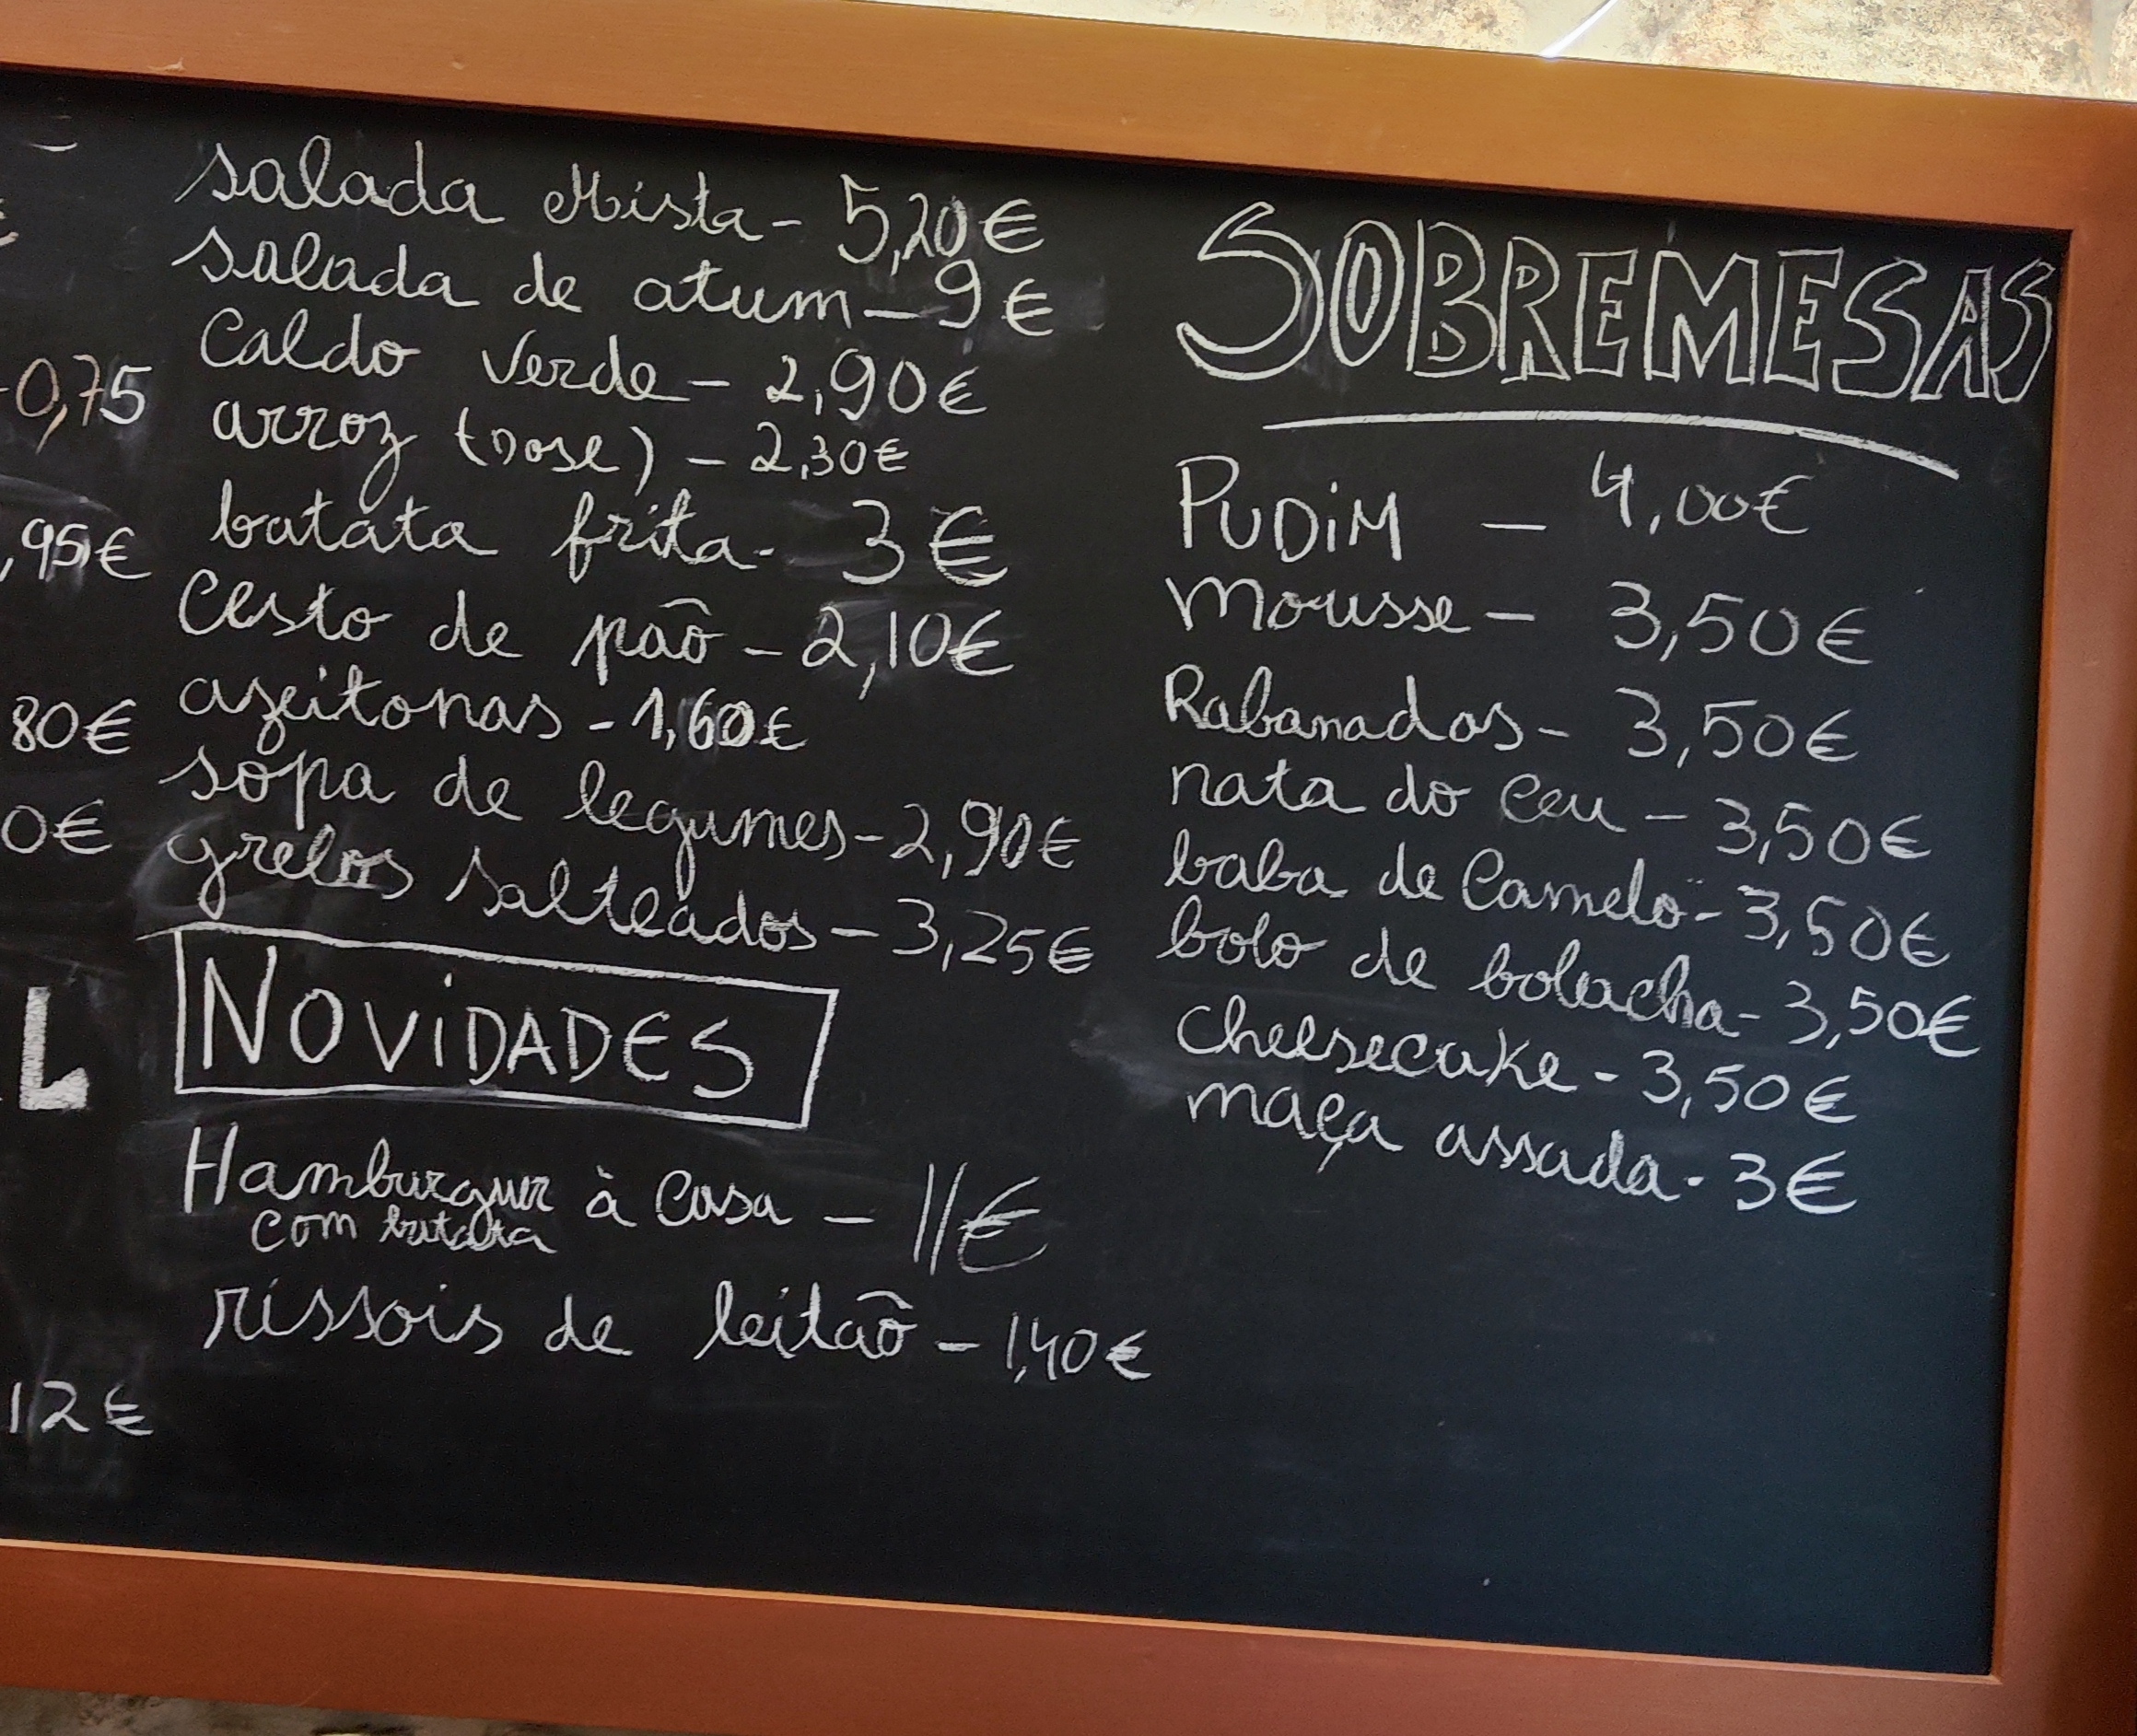 -0,75
,95€
80€
0€
L
12€
salada Mista - 5,20€
salada de atum - 9€
Caldo Verde - 2,90€
arroz (Dose) - 2,30€
batata frita - 3€
Cesto de pão - 2,10€
azeitonas - 1,60€
sopa de legumes - 2,90€
grelos salteados - 3,25€
NOViDADES
Hamburguer à Casa - 11€
com batata
rissois de leitão - 1,40€
SOBREMESAS
PUDiM - 4,00€
mousse - 3,50€
Rabanadas - 3,50€
nata do Ceu - 3,50€
baba de Camelo - 3,50€
bolo de bolacha - 3,50€
Cheesecake - 3,50€
maça assada - 3€